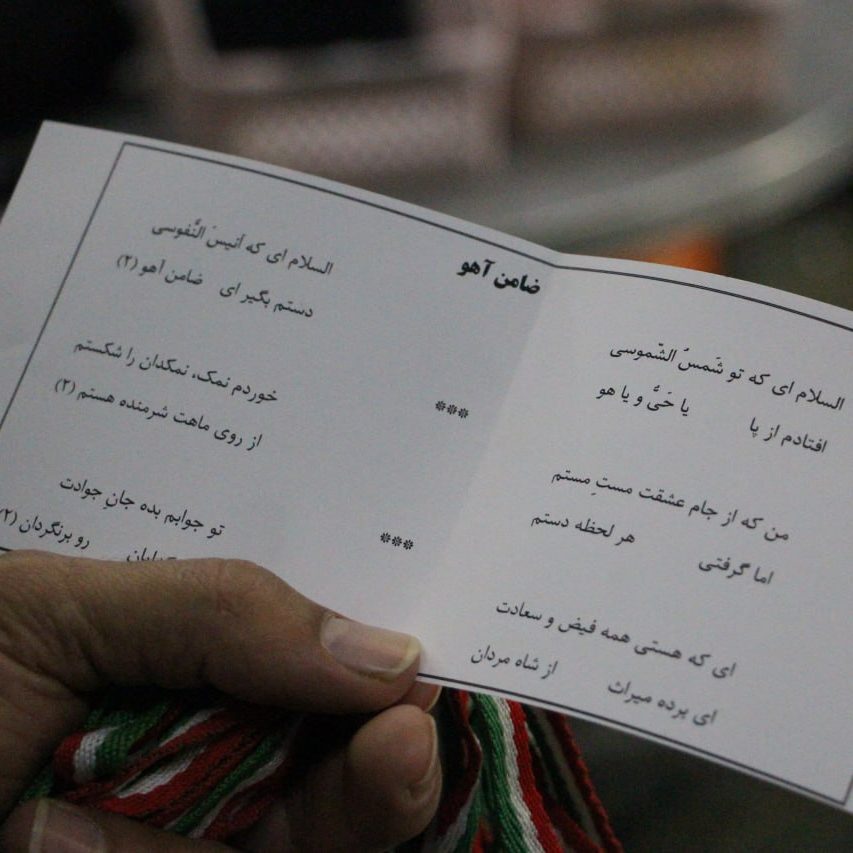 ضامن آهو
السلام ای که تو شَمسُ الشّموسی
السلام ای که اَنیسَ النُّفوسی
افتادم از پا یا حَیُّ و یا هو
دستم بگیر ای ضامن آهو (۲)
***
من که از جام عشقت مستِ مستم
خوردم نمک، نمکدان را شکستم
اما گرفتی هر لحظه دستم
از روی ماهت شرمنده هستم (۲)
***
ای که هستی همه فیض و سعادت
تو جوابم بده جانِ جوادت
ای برده میراث از شاه مردان
رو برنگردان (۲)